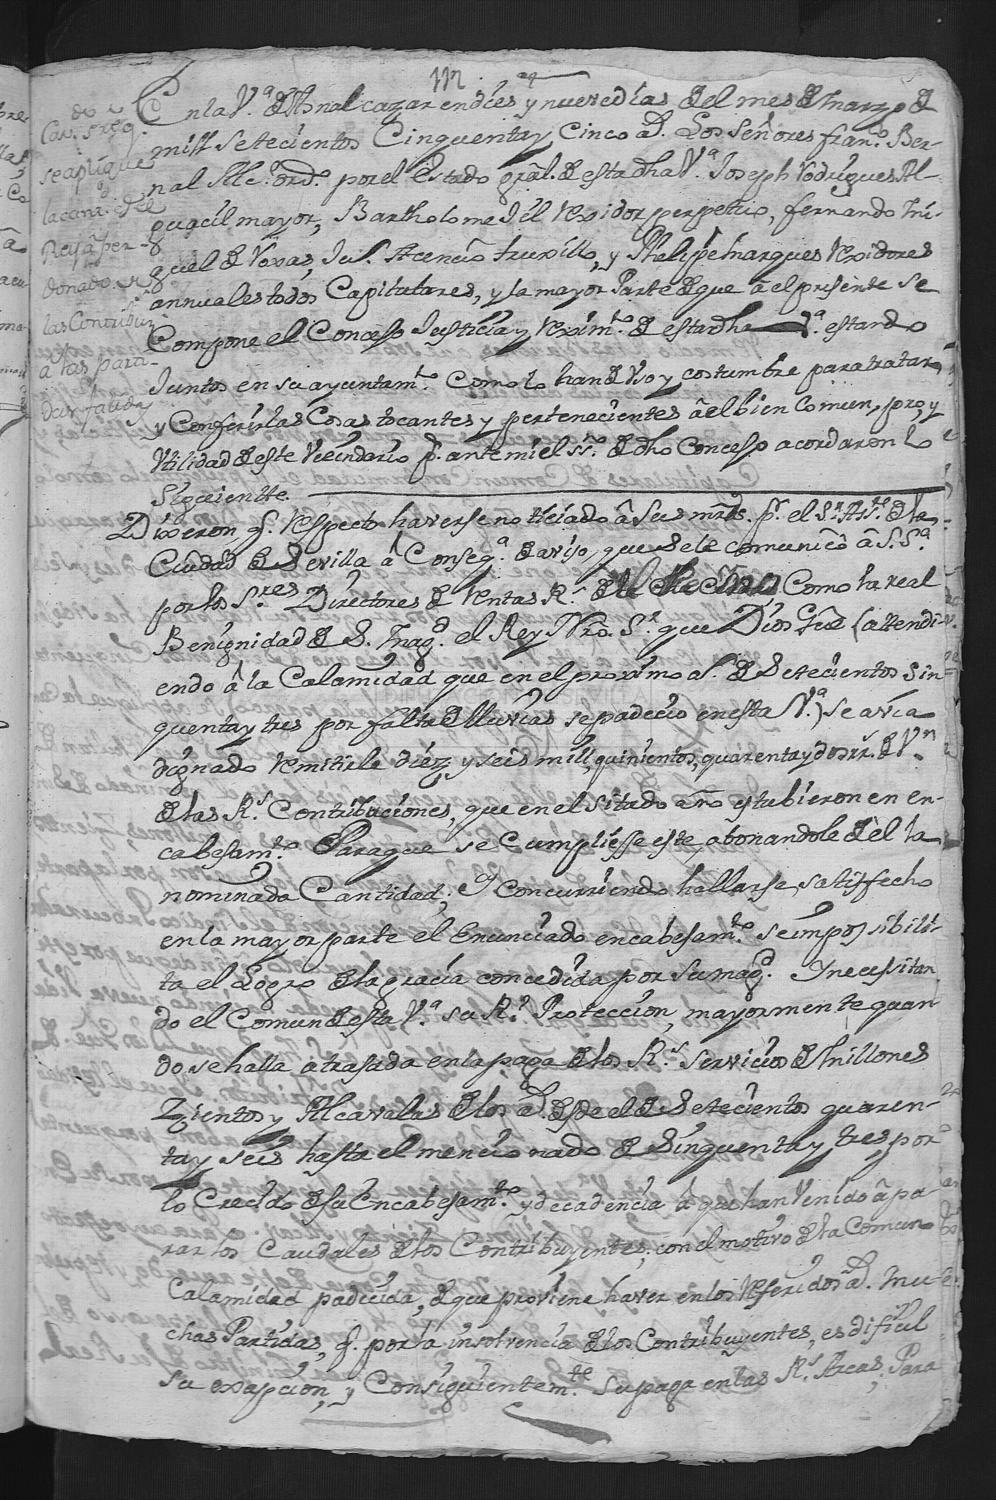 do e
Cav.
se aplique
la cant.
Rey a per-
donado
las Contribuz.s
a las parti-
das fallidas
En la V.ª de Asnalcazar en dies y nuebe dias del mes de Marzo de
mill setecientos Cinquenta y Cinco a.s Los Señores fran.co Ber-
nal Alc.e ord.o por el Estado gral. de esta dha V.ª Joseph Rodrigues Al-
guacil mayor, Bartholome Jil Rexidor perpetuo, fernando Mi-
guel de Roxas, Ju.o Acencio truxillo, y Phelipe Marques Rexidores
annuales todos Capitulares, y la mayor Parte de que a el presente se
Compone el Concejo Justicia y Reximi.to de esta dha V.ª estando
Juntos en su ayuntam.to Como lo han de Vso y costumbre para tratar
y Conferir las Cosas tocantes y pertenecientes a el bien Comun, pro, y
Vtilidad de este Vecindario p.r ante mi el ss.no de dho Concejo acordaron lo
Siguiente
Dixeron q.e respecto haverse noticiado a Sus mrds. p.r el S.r As.te de la
Ciudad de Sevilla a Conseq.ª de aviso, que se le comunico a S. S.ª
por los S.res Directores de Rentas R.s Como la real
Benignidad de S. Mag.d el Rey Nro. S.r que Dios Gue (attendi-
endo a la Calamidad que en el proximo a.o de Setecientos sin
quenta y tres por falta de lluvias se padecio en esta V.ª) se avia
dignado remitirle diez y seis mill, quinientos, quarenta y dos rr.s de V.n
de las R.s Contribuciones, que en el sitado año estubieron en en-
cabesam.to Para que se Cumpliesse este, abonandole de el la
nominada Cantidad; Y Concurriendo hallarse satisfecho
en la mayor parte el enunciado encabesam.to se imposibili-
ta el Logro de la gracia concedida por su mag.d Y necessitan
do el Comun de esta V.ª su R.l Proteccion, mayormente quan
do se halla atrasada en la paga de los R.s servicios de Millones
Zientos y Alcavalas de los a.s desde el de Setecientos quaren-
ta y seis hasta el mencionado de Sinquenta y tres, por
lo Crecido de su Encabesam.to y decadencia a que han Venido a pa-
rar los Caudales de los Contribuyentes, con el motivo de la Comun
Calamidad padecida, de que proviene haver en los referidos a.s Mu-
chas Partidas, q.e por la insolvencia de los Contribuyentes, es dificil
su exapcion, y Consiguientem.te su paga en las R.s Arcas, Para